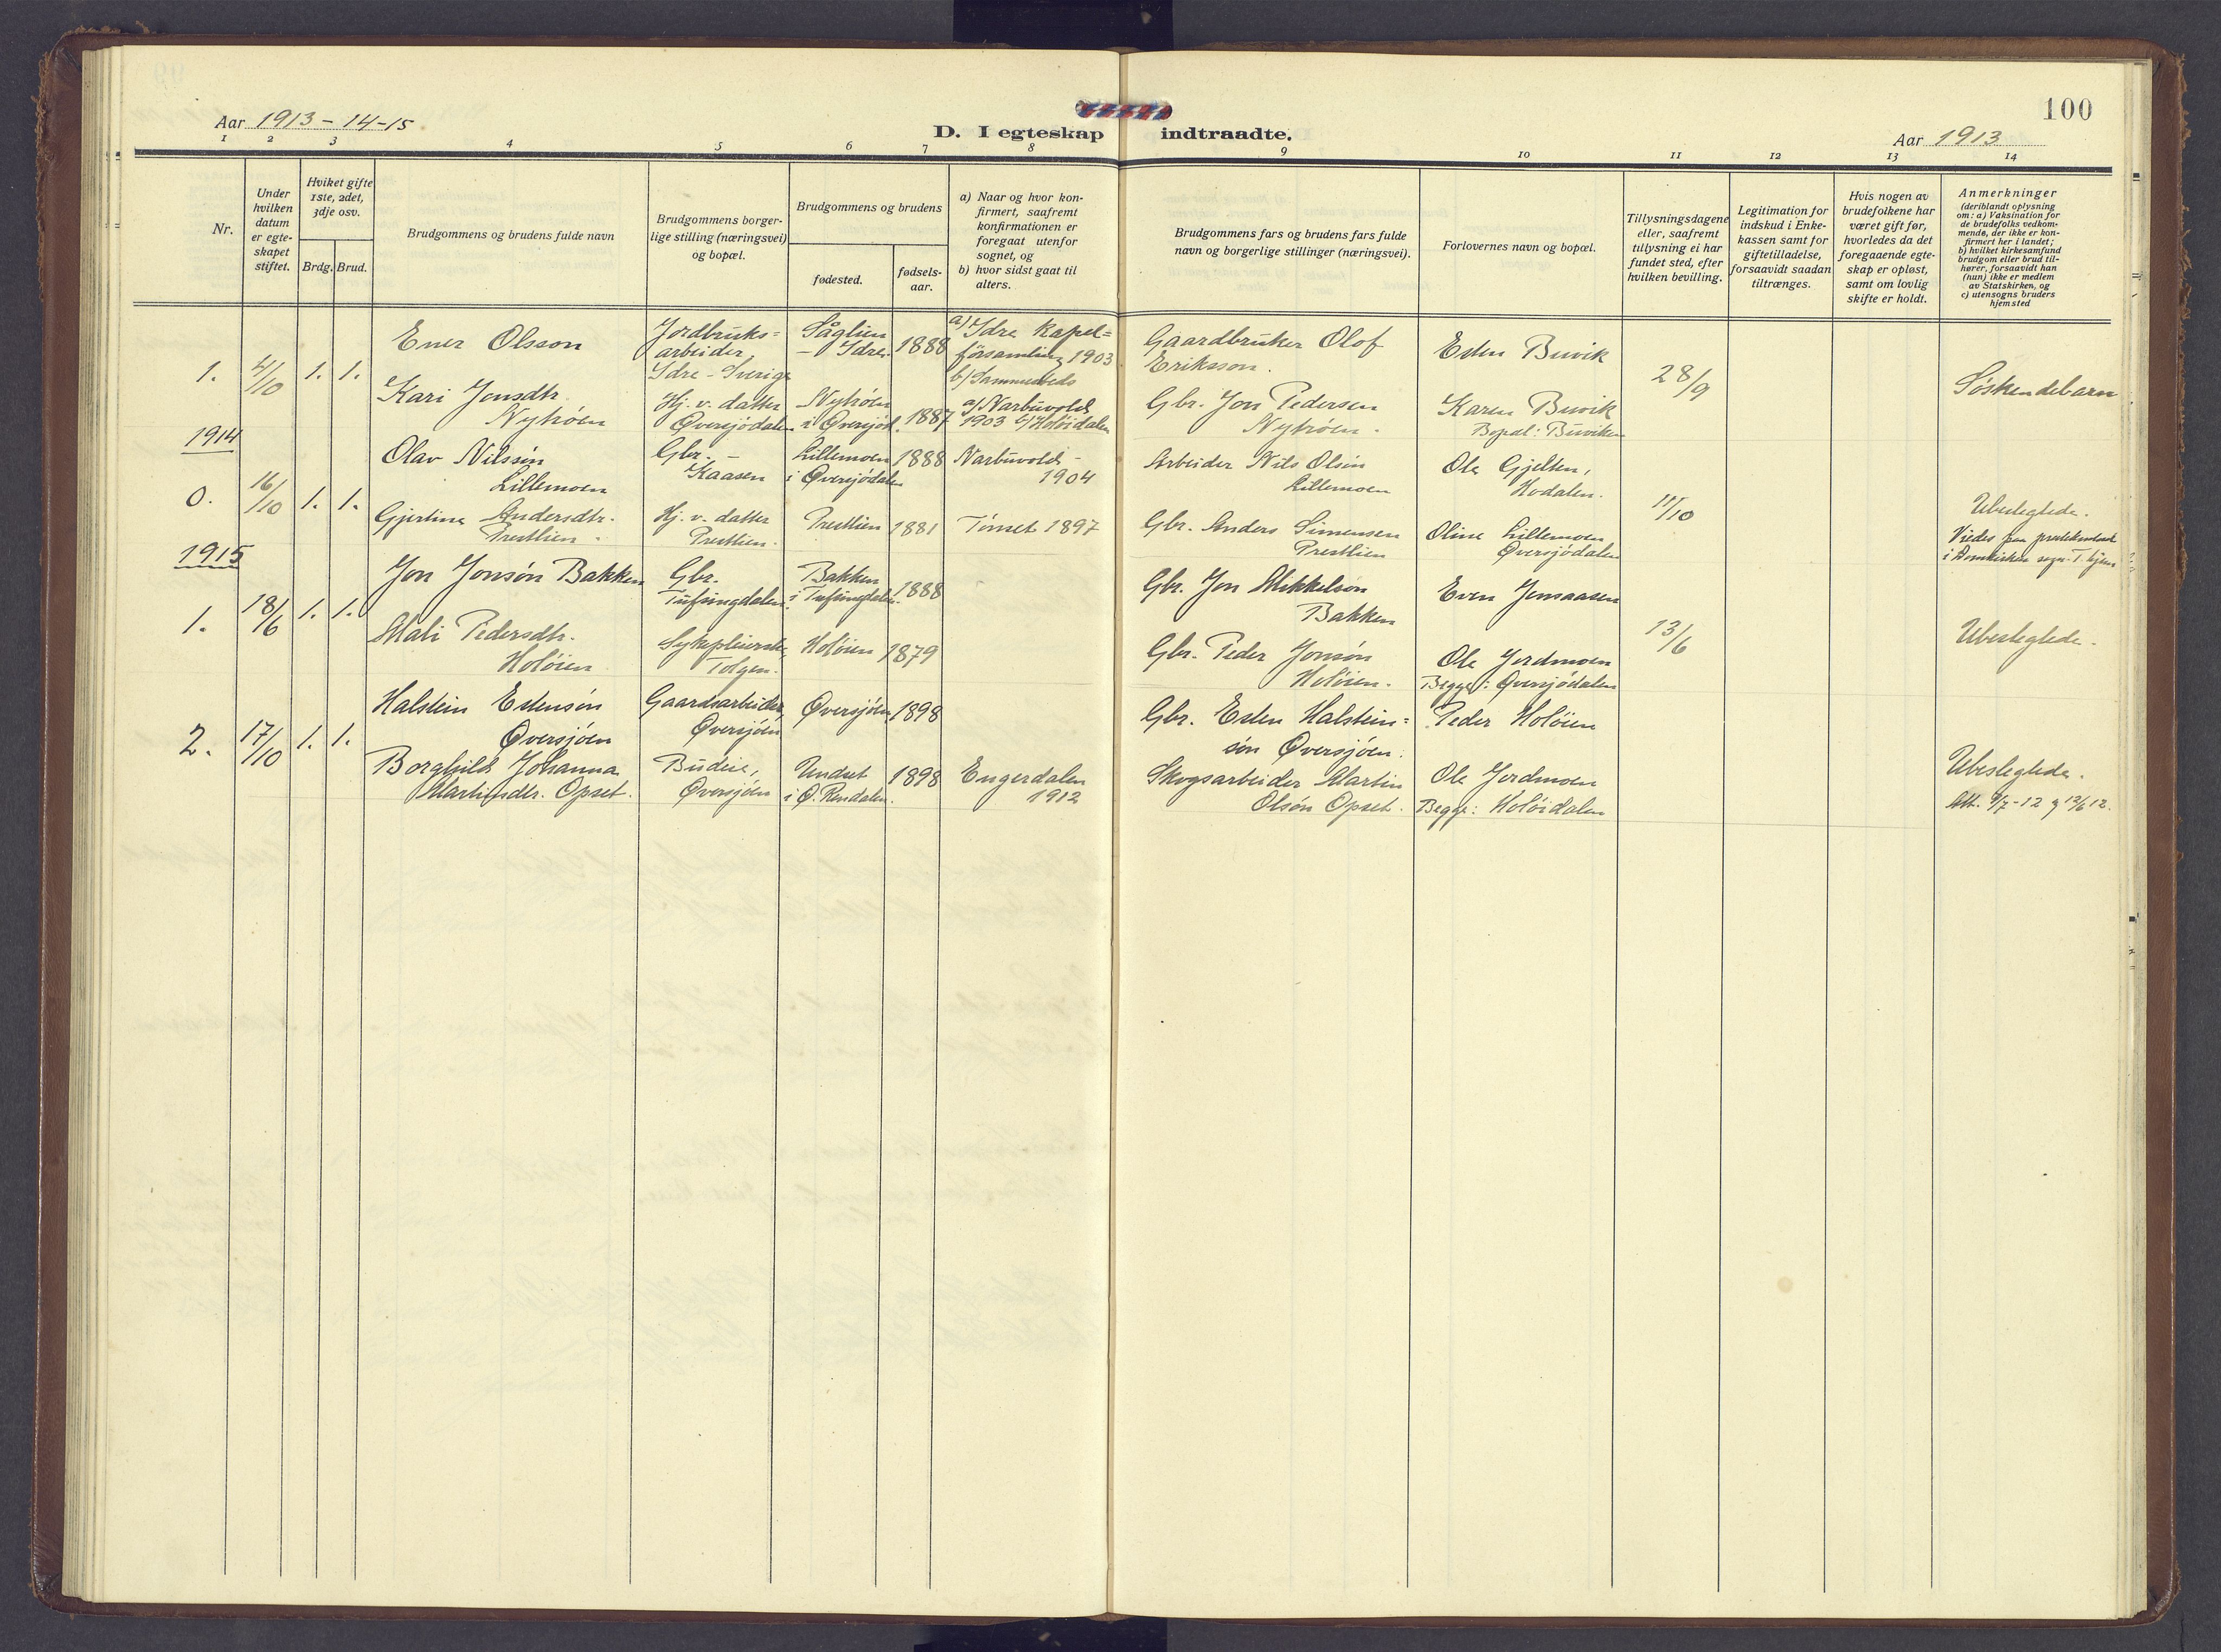 100
Aar 1913-14-15.
D. I egteskap indtraadte.
Aar 1913
1 2 3 4 5 6 7 8 9 10 11 12 13 14
Nr.
Under
hvilken
datum
er egte-
skapet
stiftet.
Hviket gifte
1ste, 2det,
3dje osv.
Brdg. Brud.
Brudgommens og brudens fulde navn
Brudgommens borger-
lige stilling (næringsvei)
og bopæl.
Brudgommens og brudens
fødested.
fødsels-
aar.
a) Naar og hvor kon-
firmert, saafremt
konfirmationen er
foregaat utenfor
sognet, og
b) hvor sidst gaat til
alters.
Brudgommens fars og brudens fars fulde
navn og borgerlige stillinger (næringsvei).
Forlovernes navn og bopæl.
Tillysningsdagene
eller, saafremt
tillysning ei har
fundet sted, efter
hvilken bevilling.
Legitimation for
indskud i Enke-
kassen samt for
giftetilladelse,
forsaavidt saadan
tiltrænges.
Hvis nogen av
brudefolkene har
været gift før,
hvorledes da det
foregaaende egte-
skap er opløst,
samt om lovlig
skifte er holdt.
Anmerkninger
(deriblandt oplysning
om: a) Vaksination for
de brudefolks vedkom-
mende, der ikke er kon-
firmert her i landet;
b) hvilket kirkesamfund
brudgom eller brud til-
hører, forsaavidt han
(hun) ikke er medlem
av Statskirken, og
c) utensogns bruders
hjemsted
1. 4/10 1. 1.
Ener Olsson
Jordbruks=
arbeider,
Idre - Sverige
Såglien
- Idre.
1888
a) Idre kapel=
församling 1903
b) Sammesteds
Gaardbruker Olof
Eriksson.
Esten Buvik
28/9
Søskendebarn
Kari Jonsdtr.
Nyhrøen
Hj. v. datter
Øversjødalen
Nyhrøen
i Øversjød.
1887
a) Narbuvold
1903 b) Holøidalen
Gbr. Jon Pedersen
Nyhrøen.
Karen Buvik
Bopæl: Buviken
1914
0. 16/10 1. 1.
Olav Nilssøn
Lillemoen
Gbr. -
Kaasen
Lillemoen
i Øversjødalen
1888
Narbuvold -
1904
Arbeider Nils Olsøn
Lillemoen
Ole Gjelten,
Hodalen.
11/10
Ubeslegtede.
Gjertine Andersdtr.
Prestlien.
Hj. v. datter
Prestlien.
Prestlien
1881
Tønset 1897
Gbr. Anders Simensen
Prestlien
Oline Lillemoen
Øversjødalen
i Domkirken
1915
1. 18/6 1. 1.
Jon Jonsøn Bakken
Gbr.
Tufsingdalen.
Bakken
i Tufsingdalen.
1888
Gbr. Jon Mikkelsøn
Bakken
Even Jensaasen
13/6
Ubeslegtede.
Mali Pedersdtr.
Holøien
Sykepleierske,
Tolgen.
Holøien
1879
Gbr. Peder Jonsøn
Holøien.
Ole Jordmoen
Begge: Øversjødalen
2. 17/10 1. 1.
Halstein Estensøn
Øversjøen
Gaardsarbeider,
Øversjøen
Øversjøen
1898
Gbr. Esten Halstein=
søn Øversjøen.
Peder Holøien
Ubeslegtede.
Borghild Johanna
Martinsdtr. Opset.
Budeie,
Øversjøen
Undset
i Ø. Rendalen.
1898
Engerdalen
1912
Skogsarbeider Martin
Olsøn Opset.
Ole Jordmoen
Begge: Holøidalen
Att. 9/7-12 og 12/6 12.